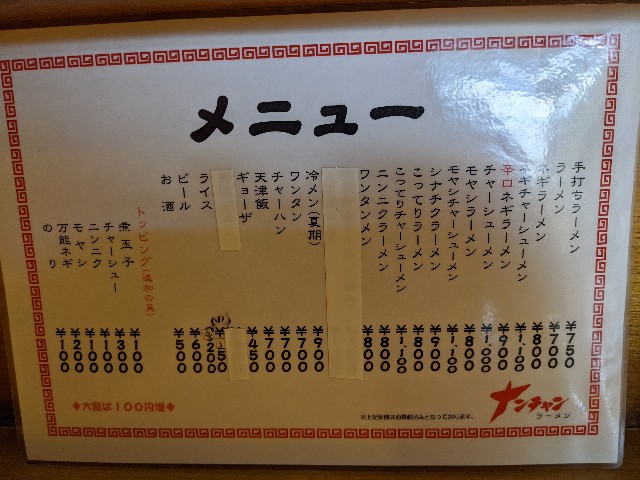 メニュー
手打ちラーメン ¥750
ラーメン ¥700
ネギラーメン ¥800
ネギチャーシューメン ¥1,100
辛口ネギラーメン ¥900
チャーシューメン ¥1,000
モヤシラーメン ¥800
モヤシチャーシューメン ¥1,100
シナチクラーメン ¥900
こってりラーメン ¥800
こってりチャーシューメン ¥1,100
ニンニクラーメン ¥800
ワンタンメン ¥800
冷メン(夏期) ¥900
ワンタン ¥700
チャーハン ¥700
天津飯 ¥700
ギョーザ ¥450
ライス ¥150 200
ビール ¥600
お酒 ¥500
トッピング(追加の具)
煮玉子 ¥100
チャーシュー ¥300
ニンニク ¥100
モヤシ ¥100
万能ネギ ¥200
のり ¥100
◆大盛は100円増◆
※上記価格は消費税込みとなっております。
ナンチャン
ラーメン